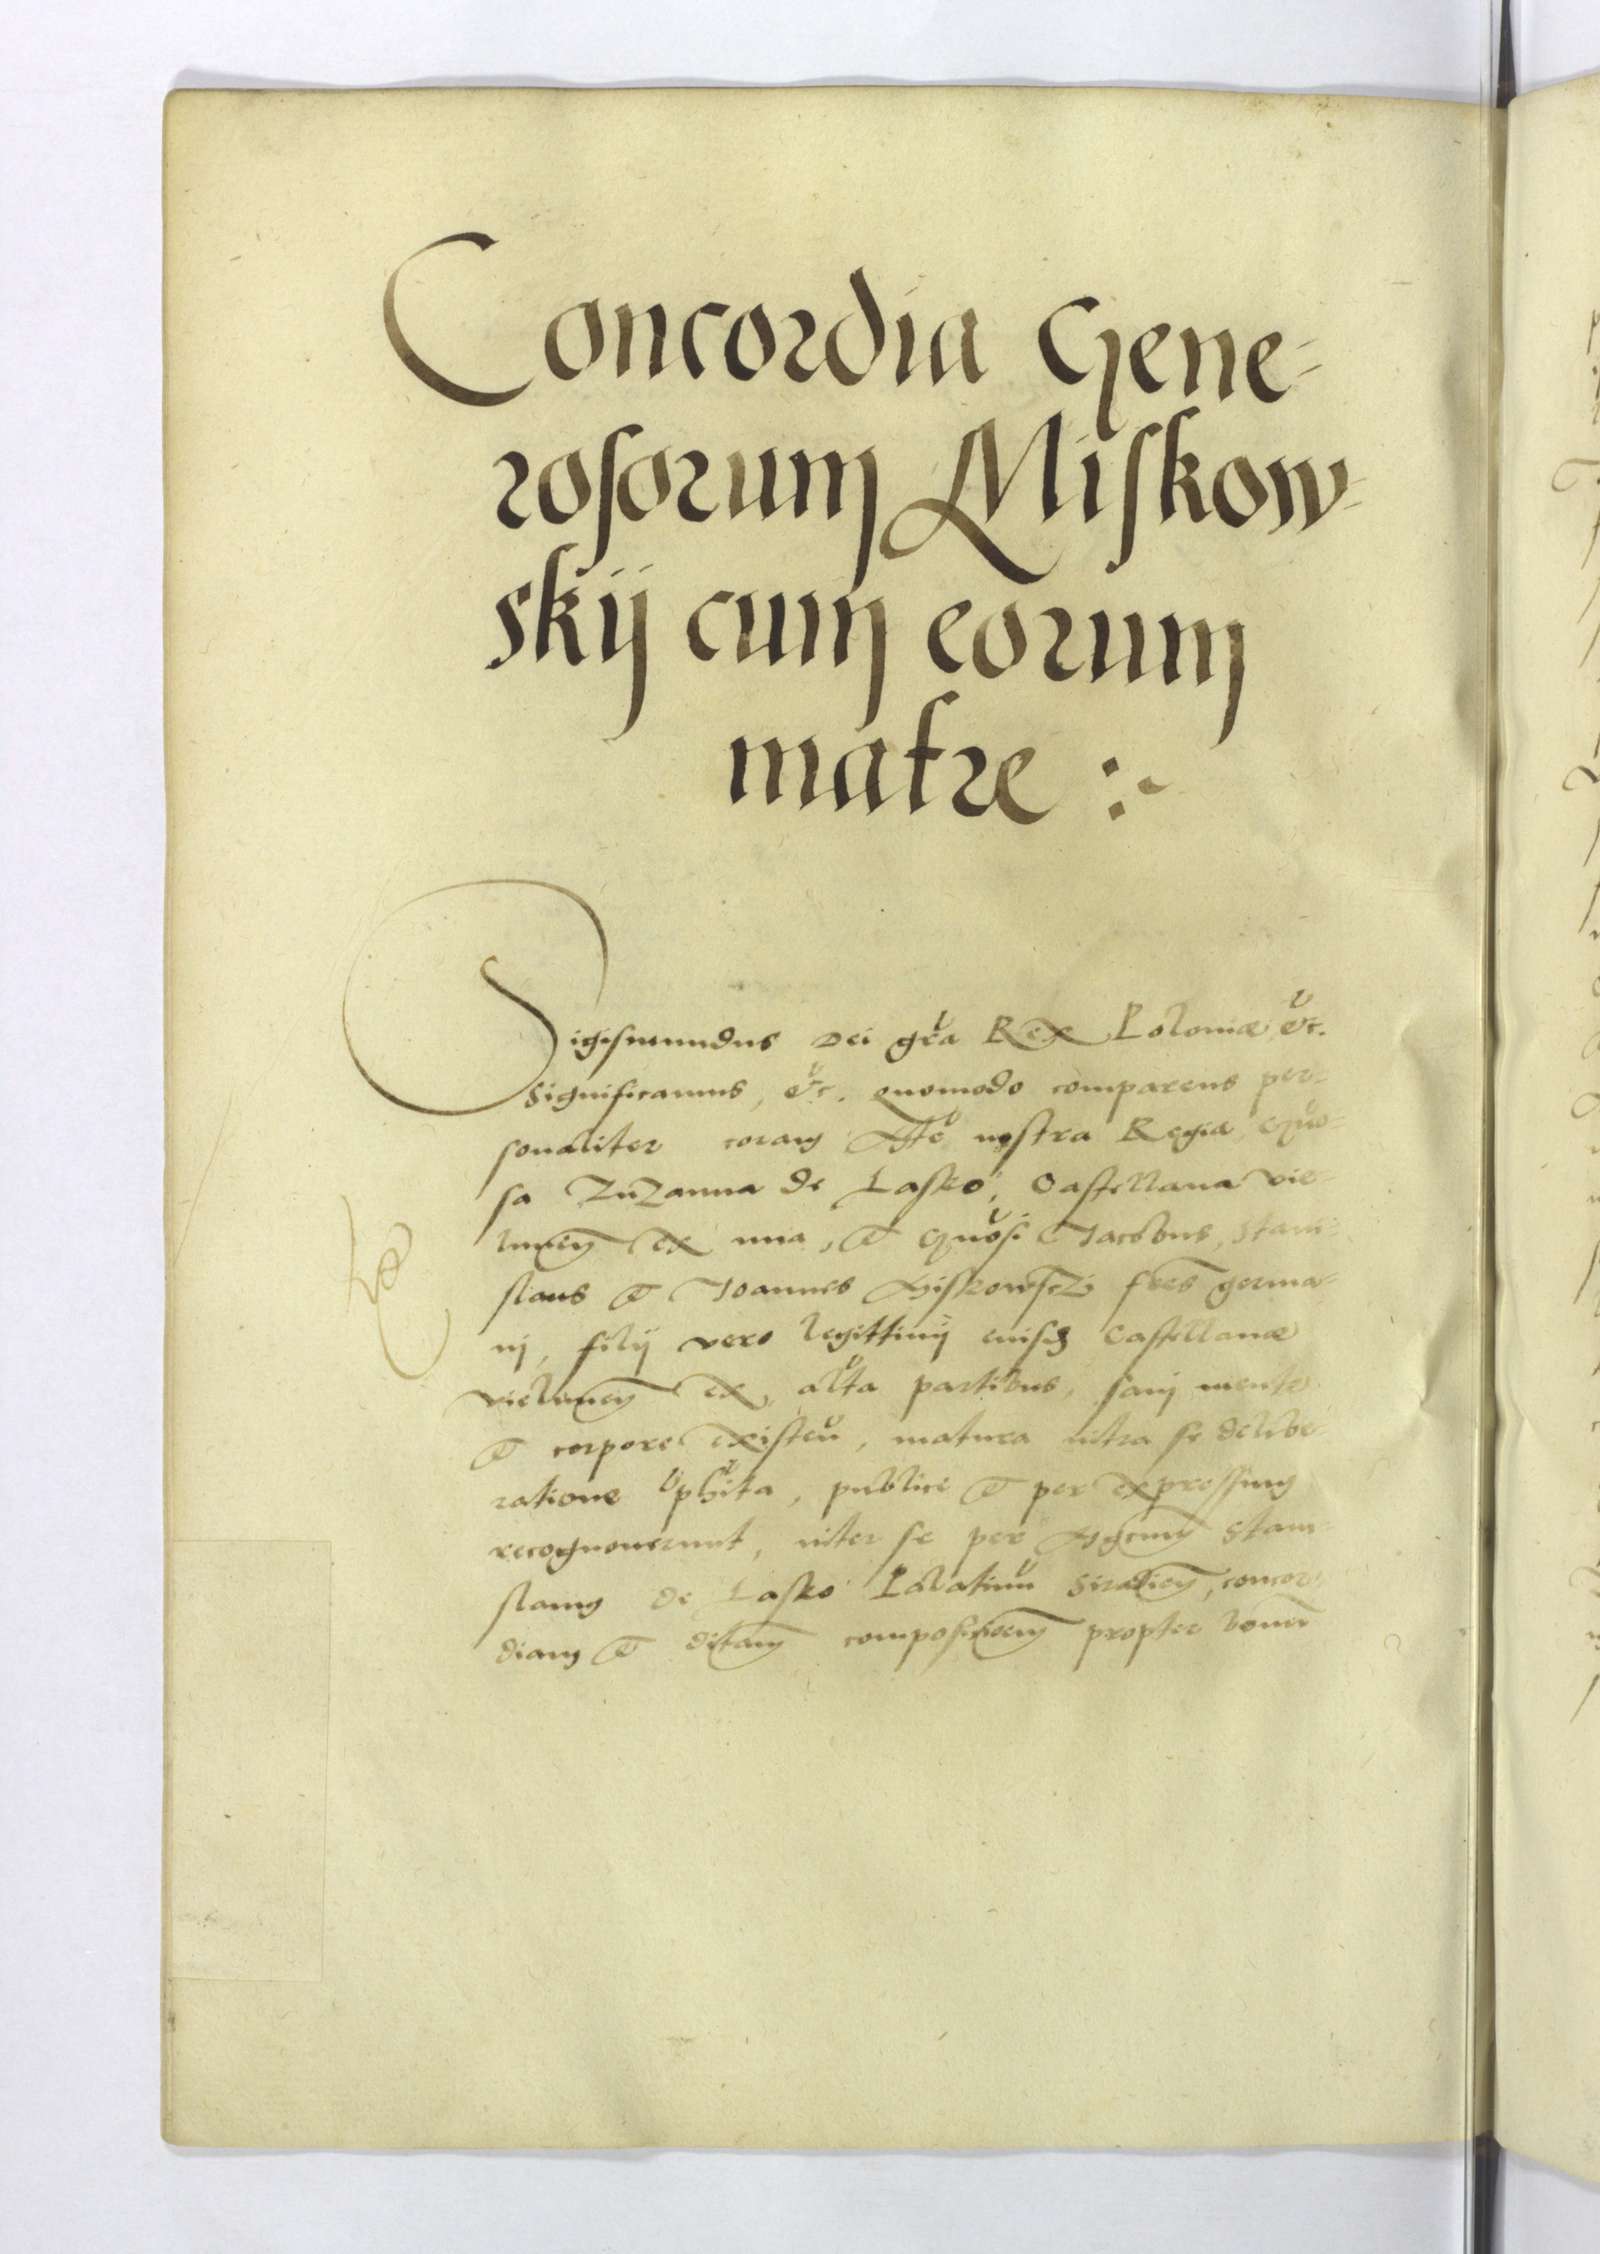 Concordia Gene-
rosorum Miskow-
skij cum eorum
matre :~
Sigismundus Dei gra Rex Poloniæ etc.
Significamus, etc. quomodo comparens per-
sonaliter coram Mte nostra Regia, Gnro-
sa Zuzanna de Lasko, Castellana vie-
lunen ex una, et Gnrosi Iacobus, Stani-
slaus et Ioannes Miskowsczi fres germa-
nj, filij vero legittimj eiusdem Castellanæ
vielunen ex alta partibus, sanj mente
et corpore existen, matura intra se delibe-
ratione phita, publice et per expressum
recognouerunt, inter se per Mgcum Stani-
slaum de Lasko Palatinu Siradien, concor-
diam et compositionem propter bonu